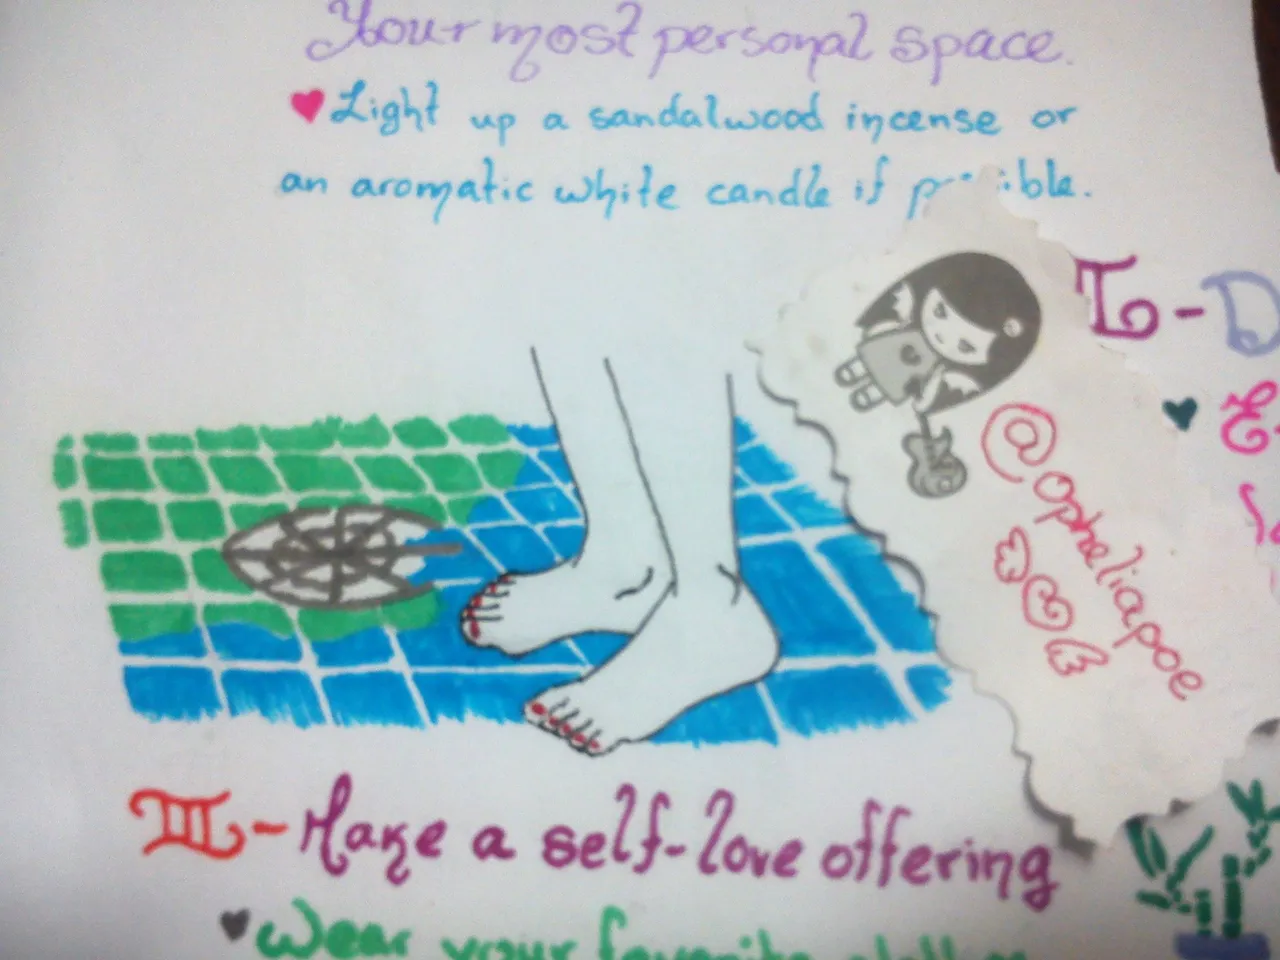 Your most personal space.
♥ Light up a sandalwood incense or
an aromatic white candle if
I - D
@opheliapoe
III - Make a self-love offering
♥ Wear your favorite